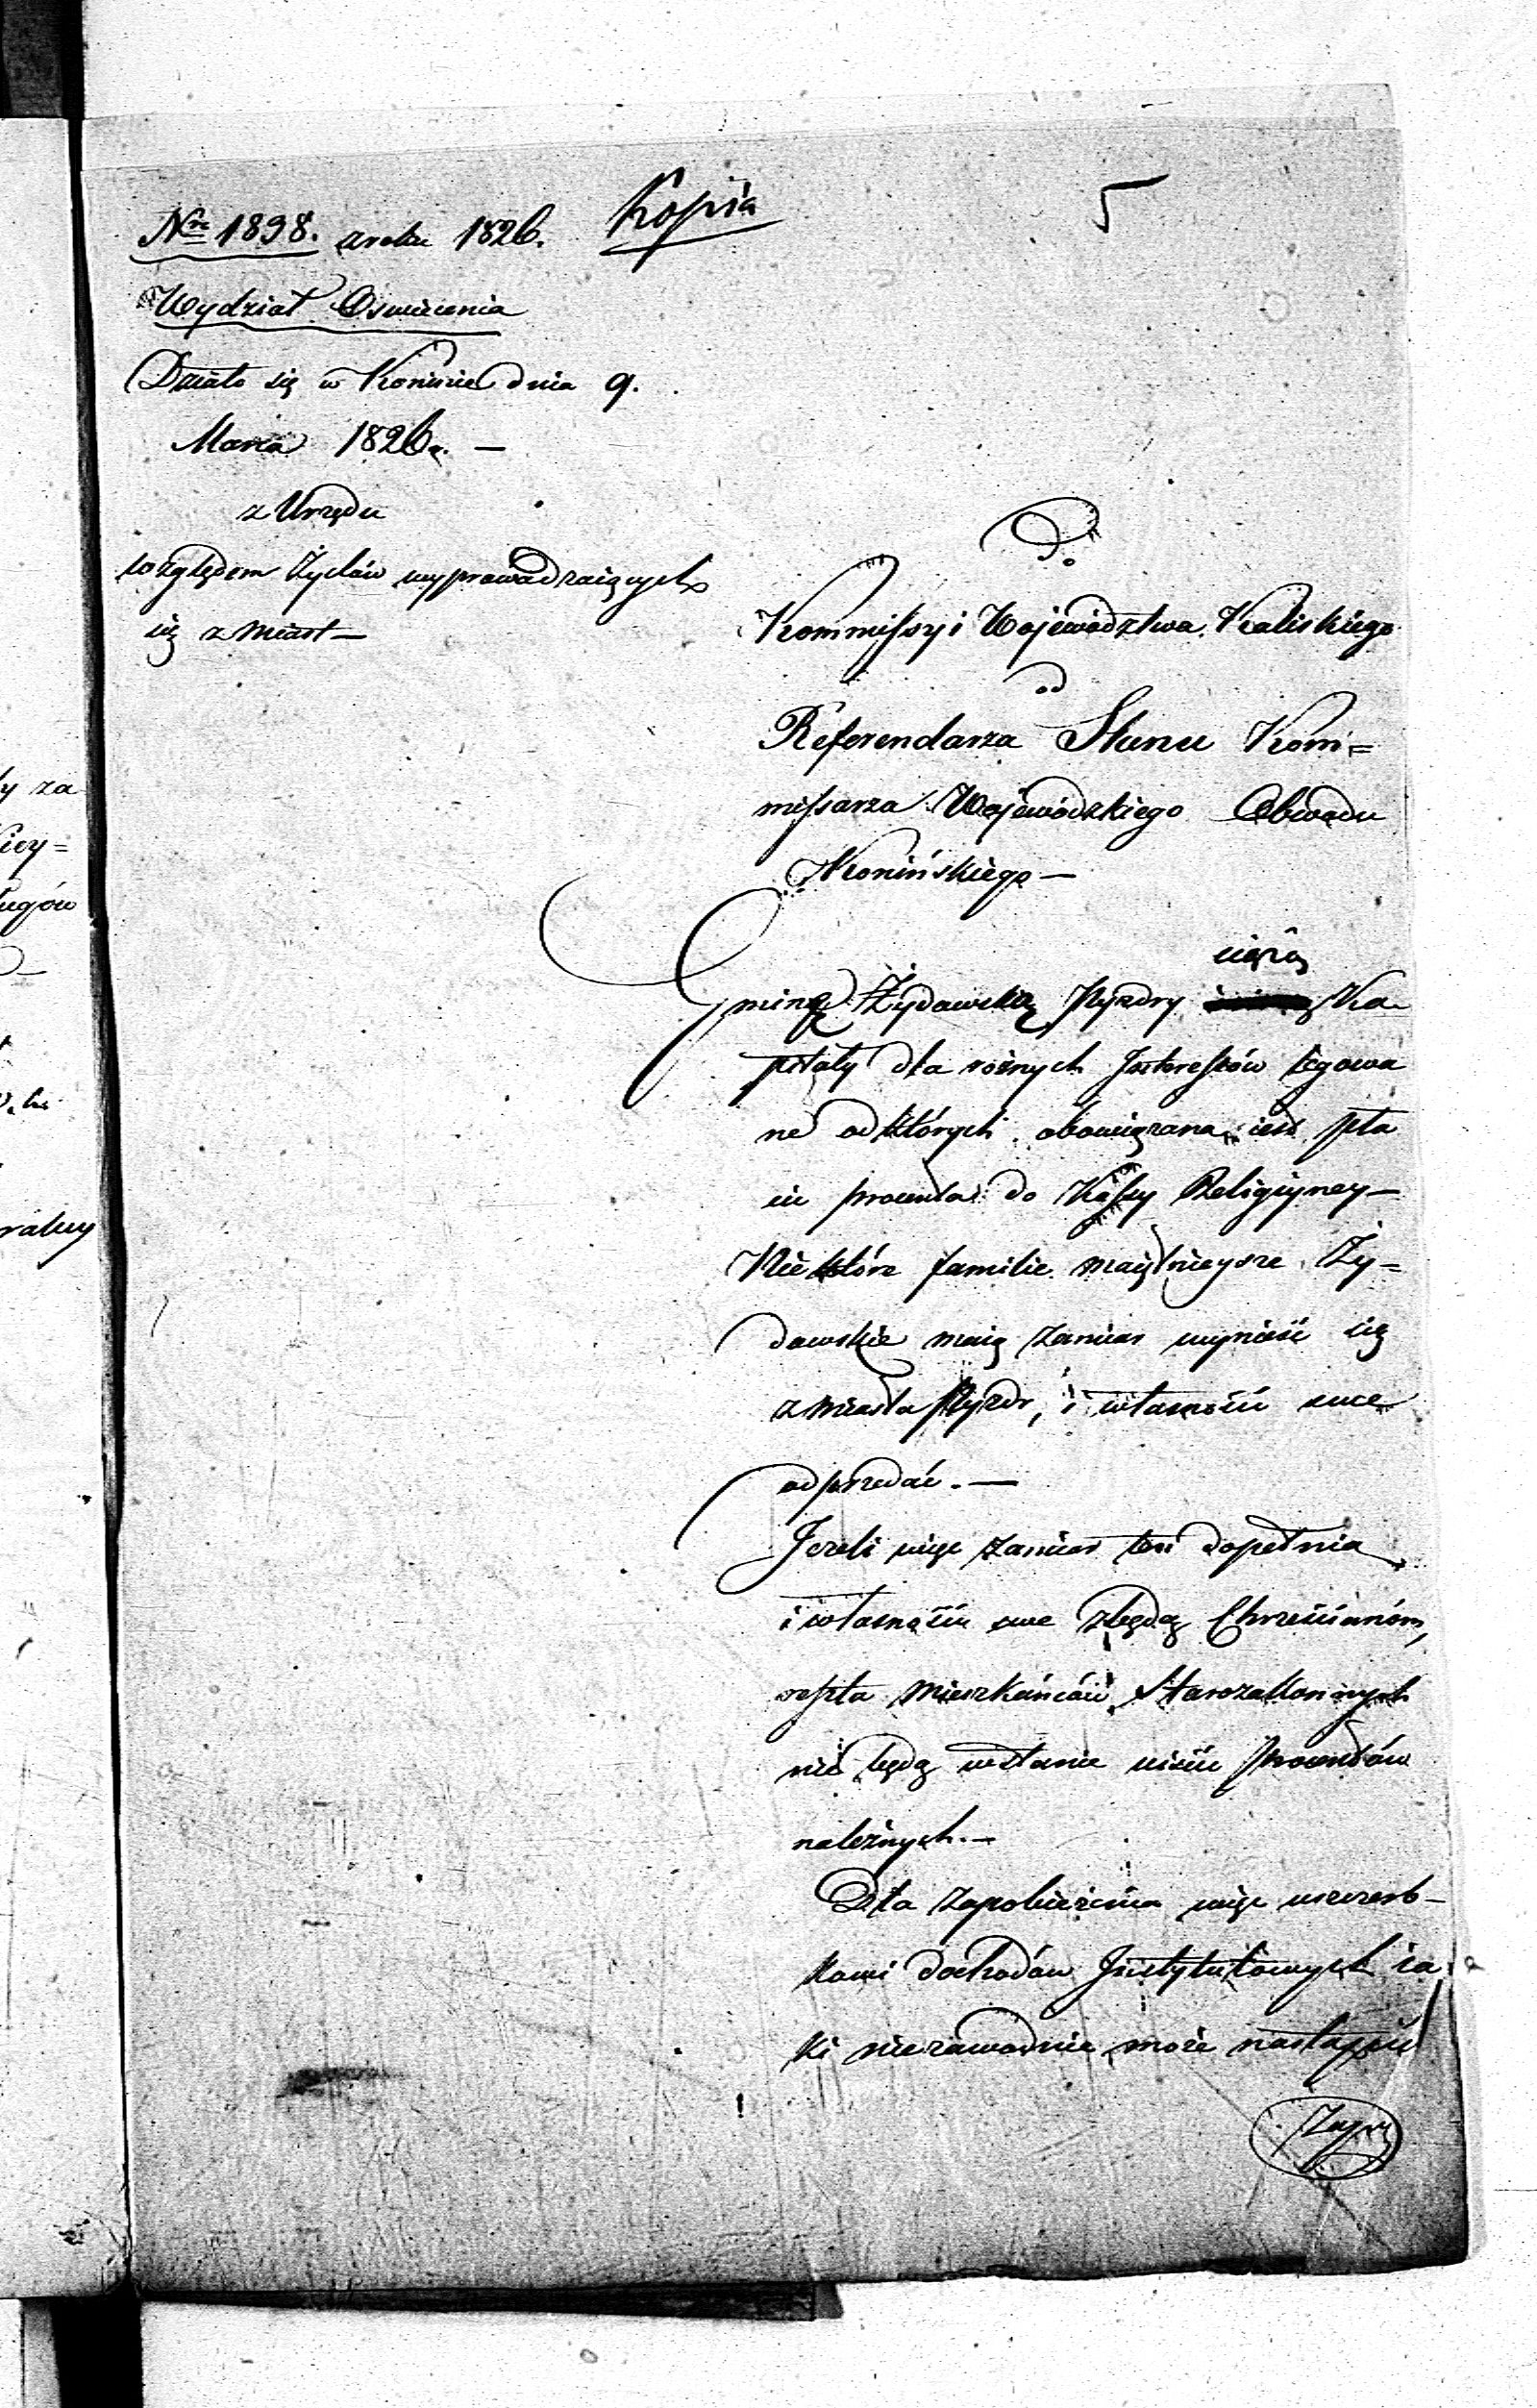 Kopia
5
Nro 1898. z roku 1826.
Wydział Oswiecenia
Działo się w Koninie dnia 9.
Marca 1826 r. —
z Urzędu
względem Żydów wyprowadzaiących
się z Miast —
Do
Kommissyi Województwa Kaliskiego
od
Referendarza Stanu Kom=
missarza Wojewódzkiego Obwodu
Konińskiego —
ciężą
Gminę Żydowską Pyzdry Ka
pitały dla rożnych Interessów legowa
ne od których obowiązana iest pła
cić procenta do Kassy Religiyney —
Niektóre familie maiętnieysze Ży=
dowskie maią zamiar wynieść się
z Miasta Pyzdr, i własności swe
odprzedać. —
Jeżeli więc zamiar ten dopełnią
i własności swe zbędą Chrześcianóm,
reszta Mieszkańców Starozakonnych
nie będą wstanie uiścić procentów
należnych. —
Dla zapobieżenia więc uszczerb-
kowi dochodów Instytutowych ia
ki niezawodnie może nastąpić